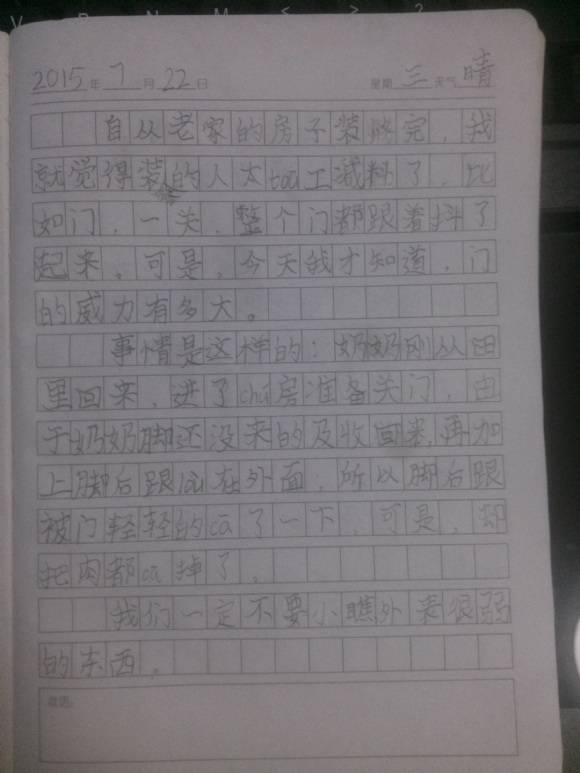 2015年7月22日 星期三天气晴
自从老家的房子装修完，我
就觉得装修的人太tōu工减料了，比
如门，一关，整个门都跟着抖了
起来。可是，今天我才知道，门
的威力有多大。
事情是这样的：奶奶刚从田
里回来，进了chú房准备关门，由
于奶奶脚还没来的及收回来，再加
上脚后跟lòu在外面，所以脚后跟
被门轻轻的cā了一下，可是，却
把肉都cā掉了。
我们一定不要小瞧外表很弱
的东西。